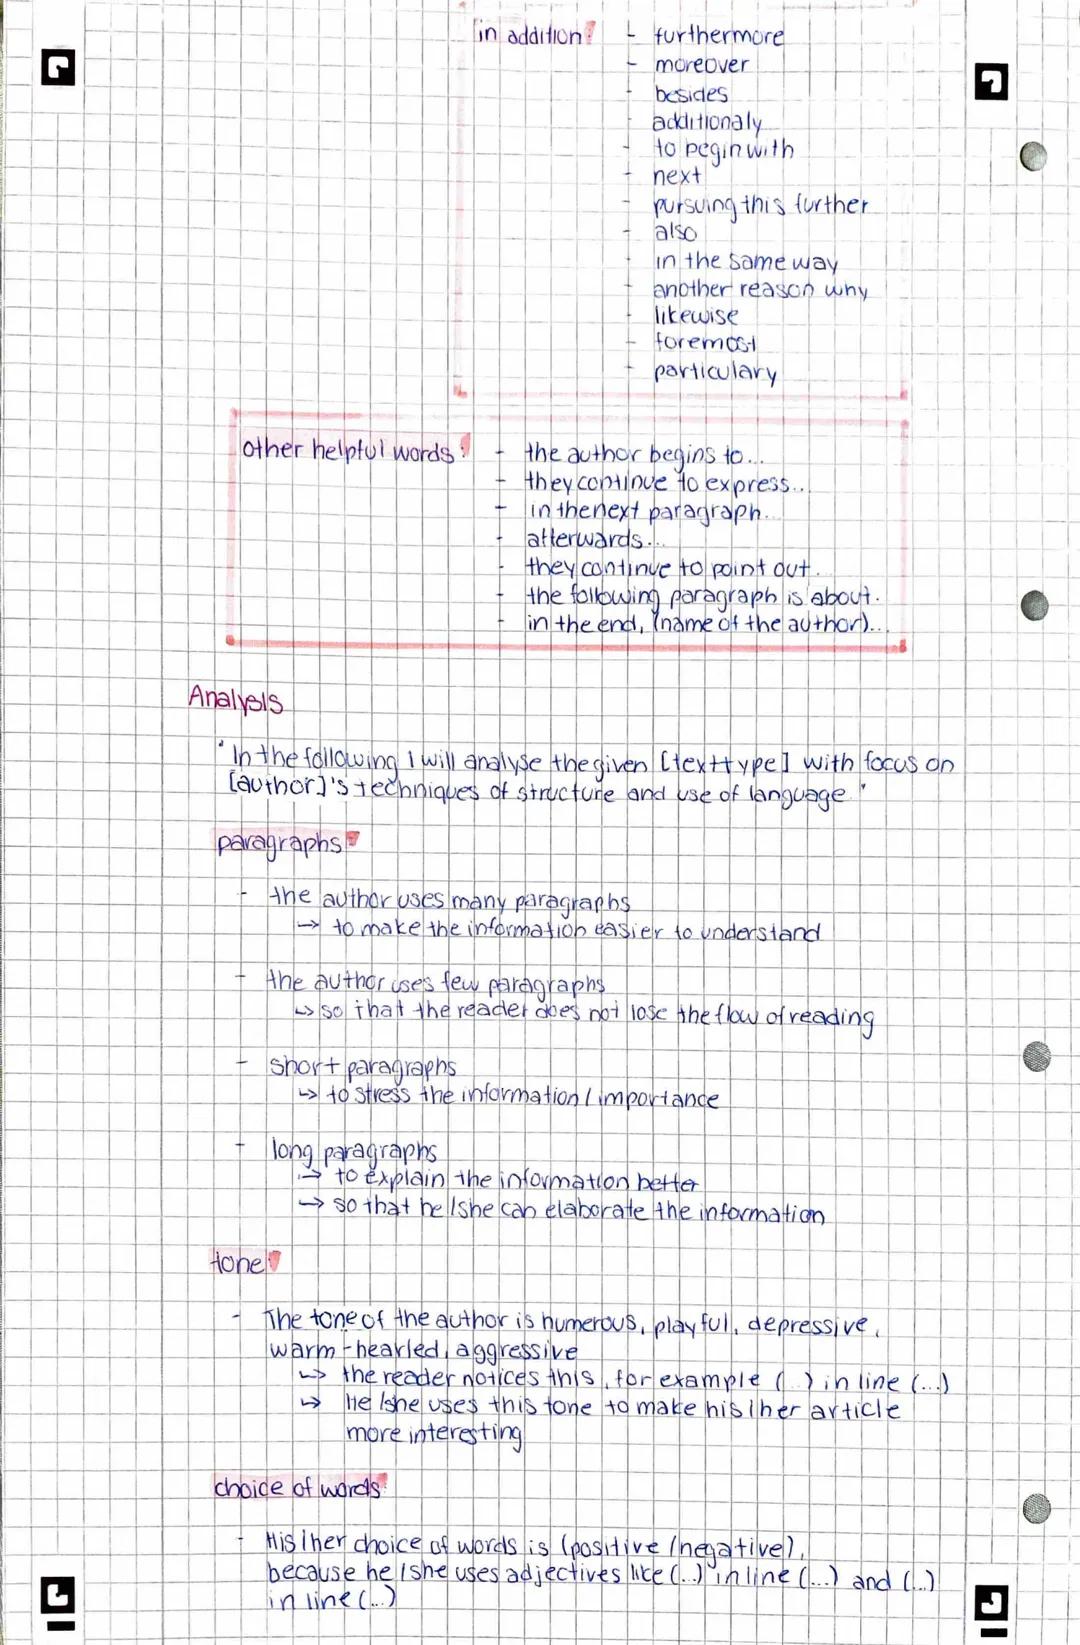 in addition: - furthermore
- moreover
- besides
- additionaly
- to begin with
- next
- pursuing this further
- also
- in the same way
- another reason why
- likewise
- foremost
- particulary
other helpful words: - the author begins to...
- they continue to express...
- in the next paragraph...
- afterwards...
- they continue to point out..
- the following paragraph is about..
- in the end, (name of the author)...
Analysis
"In the following I will analyse the given [texttype] with focus on
[author]'s techniques of structure and use of language."
paragraphs:
- the author uses many paragraphs
→ to make the information easier to understand
- the author uses few paragraphs
↳ so that the reader does not lose the flow of reading
- short paragraphs
↳ to stress the information / importance
- long paragraphs
→ to explain the information better
→ so that he/she can elaborate the information
tone:
- The tone of the author is humerous, playful, depressive,
warm-hearted, aggressive
↳ the reader notices this, for example (...) in line (...)
↳ He/she uses this tone to make his/her article
more interesting
choice of words:
- His/her choice of words is (positive/negative),
because he/she uses adjectives like (...) in line (...) and (...)
in line (...)